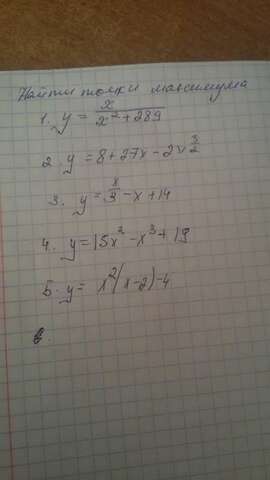 Найти точки максимума
1. y = x / x² + 289
2. y = 8 + 27x - 2x^(3/2)
3. y = x/3 - x + 14
4. y = 15x² - x³ + 19
5. y = x²(x-2)-4
6.